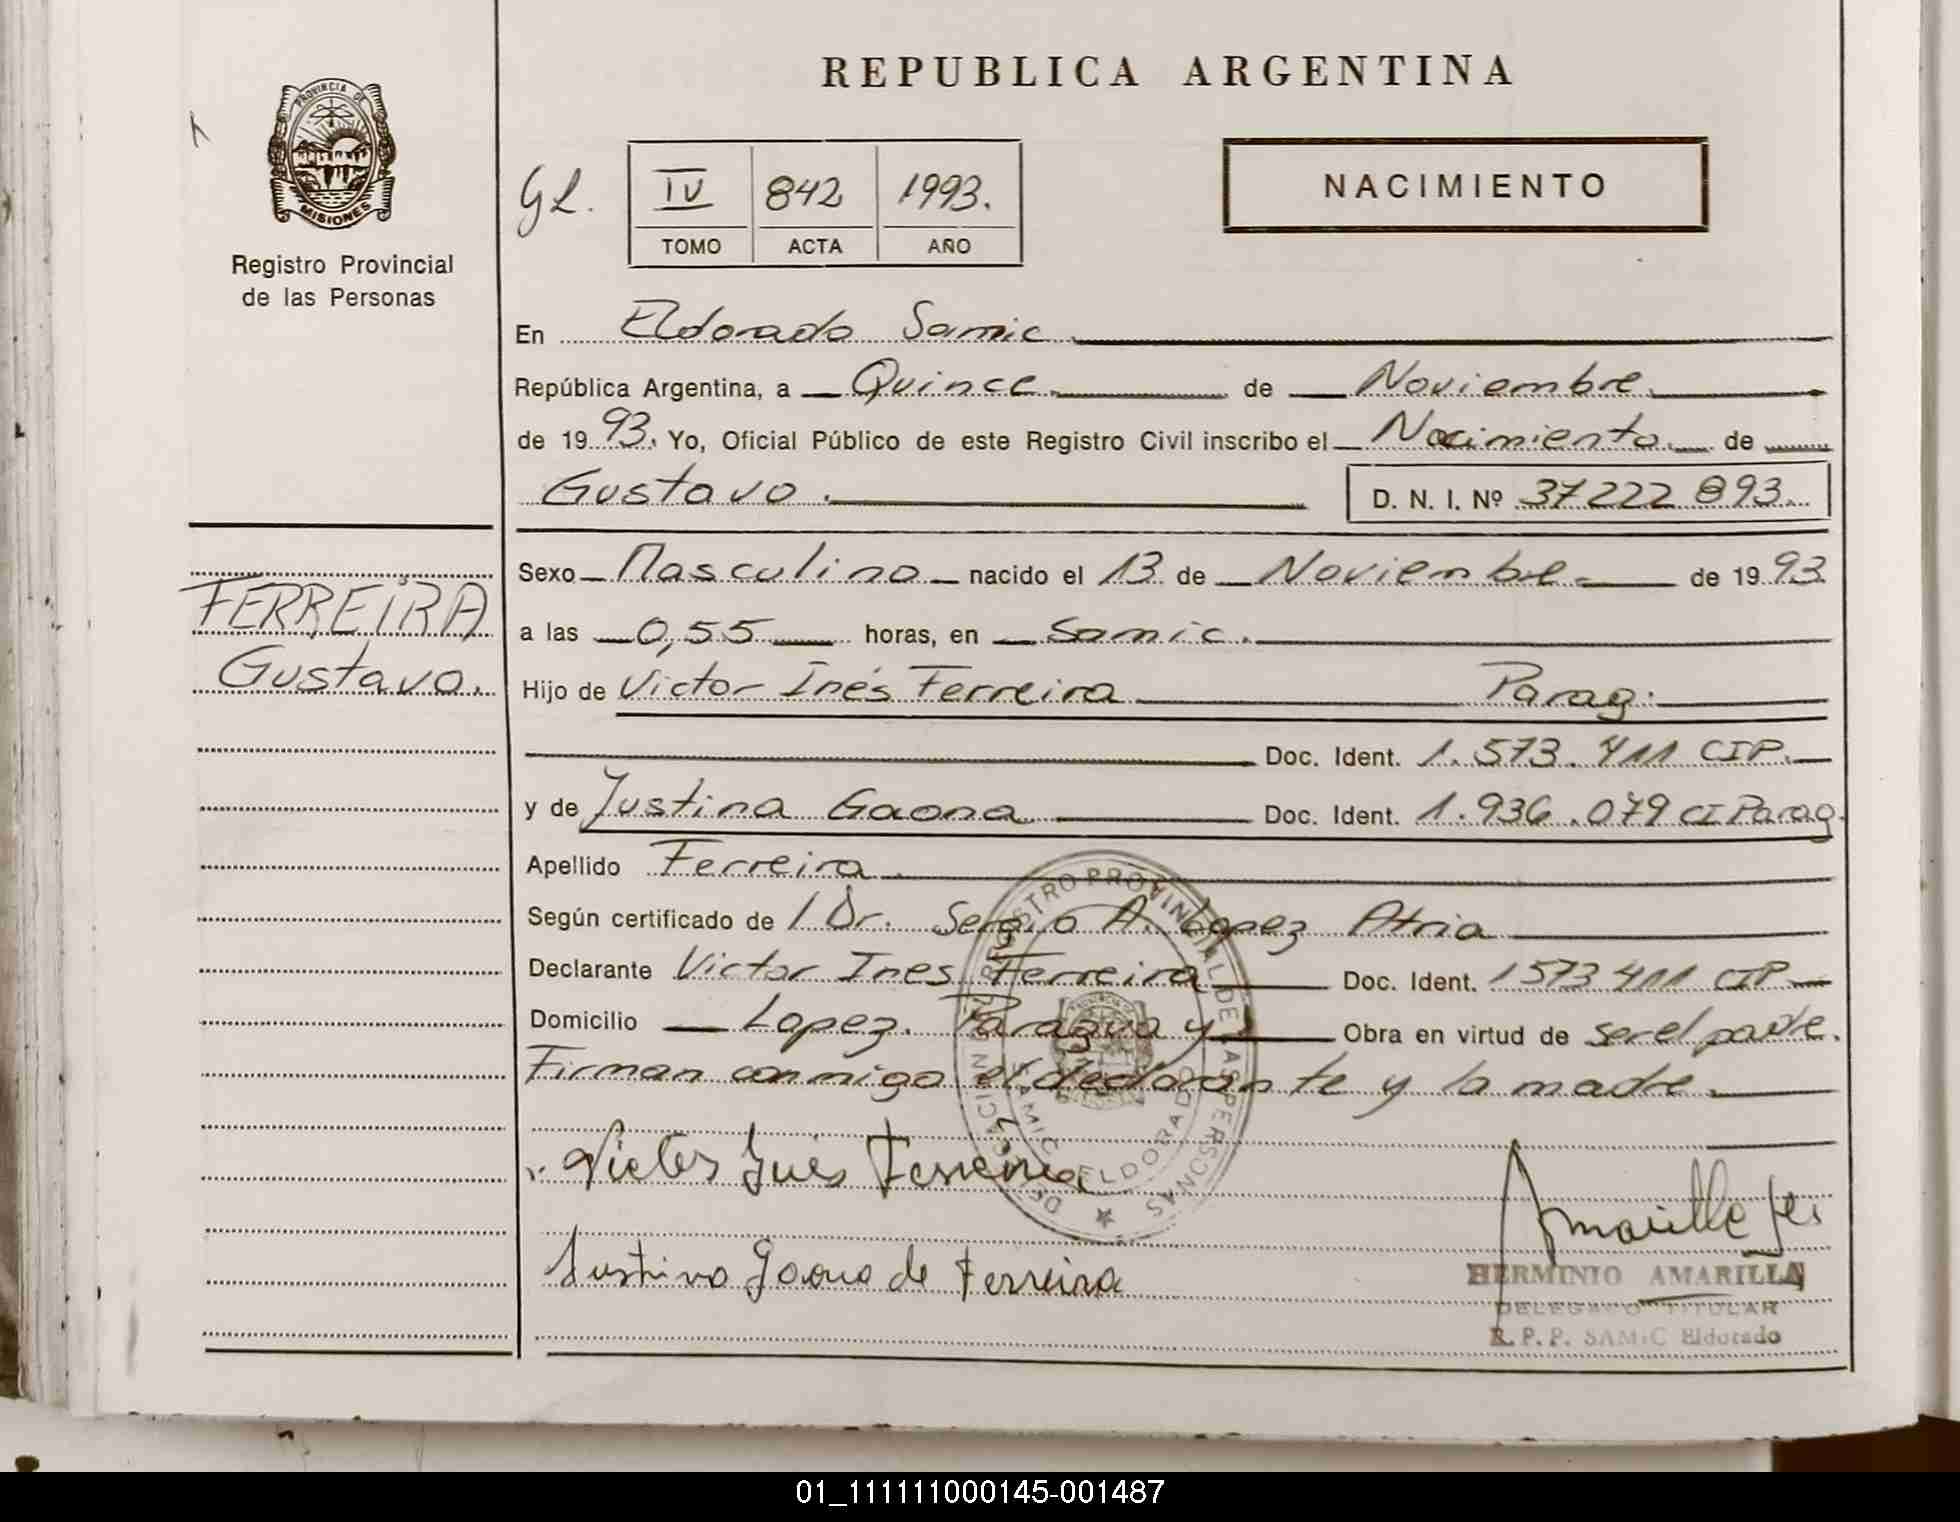 REPUBLICA ARGENTINA
PROVINCIA DE
MISIONES
Registro Provincial
de las Personas
GL.
IV 842 1993.
TOMO ACTA AÑO
NACIMIENTO
En Eldorado Samic
República Argentina, a Quince de Noviembre
de 1993. Yo, Oficial Público de este Registro Civil inscribo el Nacimiento de
Gustavo. D. N. I. Nº 37222 893.
FERREIRA
Gustavo.
Sexo Masculino nacido el 13 de Noviembre de 1993
a las 0,55 horas, en Samic.
Hijo de Victor Inés Ferreira Parag.
Doc. Ident. 1.573.411 CIP.
y de Justina Gaona Doc. Ident. 1.936.079 CI Parag.
Apellido Ferreira
Según certificado de l Dr. Sergio A. Lopez Atria
Declarante Victor Ines Ferreira Doc. Ident. 1573411 CIP
Domicilio Lopez. Paraguay Obra en virtud de ser el padre.
Firman conmigo el declarante y la madre
REGISTRO PROVINCIAL DE LAS PERSONAS
SAMIC ELDORADO
Victor Inés Ferreira
Justina Gaona de Ferreira
HERMINIO AMARILLA
DELEGADO TITULAR
R. P. P. SAMIC Eldorado
01_111111000145-001487